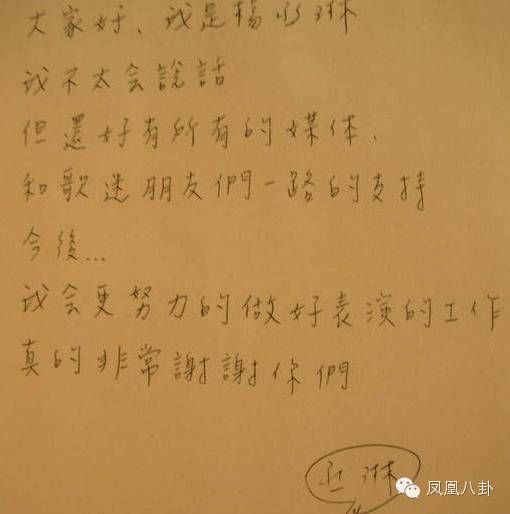 大家好、我是楊丞琳
我不太会說話
但還好有所有的媒体、
和歌迷朋友們一路的支持
今後...
我会更努力的做好表演的工作
真的非常謝謝你們
丞琳
凤凰八卦